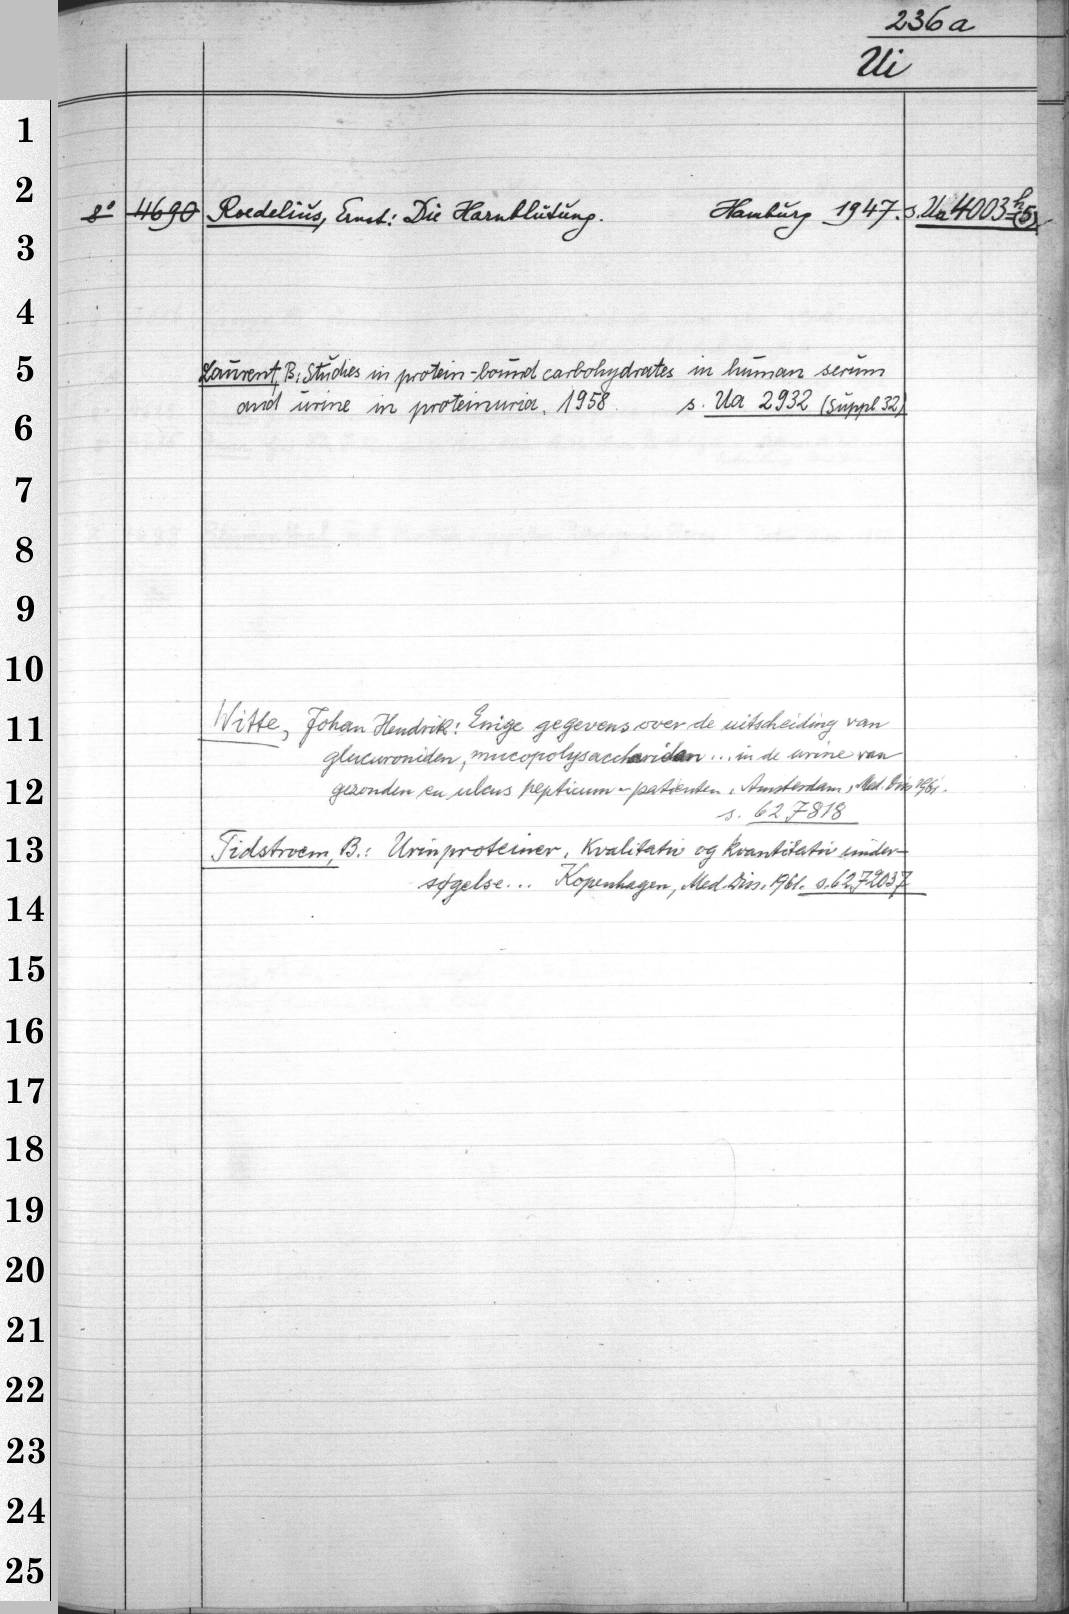 236a
Ui
1
2
8° 4690 Roedelius, Ernst: Die Harnblutung. Hamburg 1947. s. Ua 4003 h (5)
3
4
5
Laurent, B: Studies in protein-bound carbohydrates in human serum
and urine in proteinuria. 1958. s. Ua 2932 (Suppl 32)
6
7
8
9
10
11
Witte, Johan Hendrik: Enige gegevens over de uitscheiding van
glucuroniden, mucopolysacchariden ... in de urine van
12
gezonden en ulcus pepticum-patienten. Amsterdam, Med. Diss 1961.
s. 62.7818
13
Tidstroem, B.: Urinproteiner. Kvalitativ og kvantitativ under-
søgelse... Kopenhagen, Med. Diss. 1961. s. 62.72037
14
15
16
17
18
19
20
21
22
23
24
25